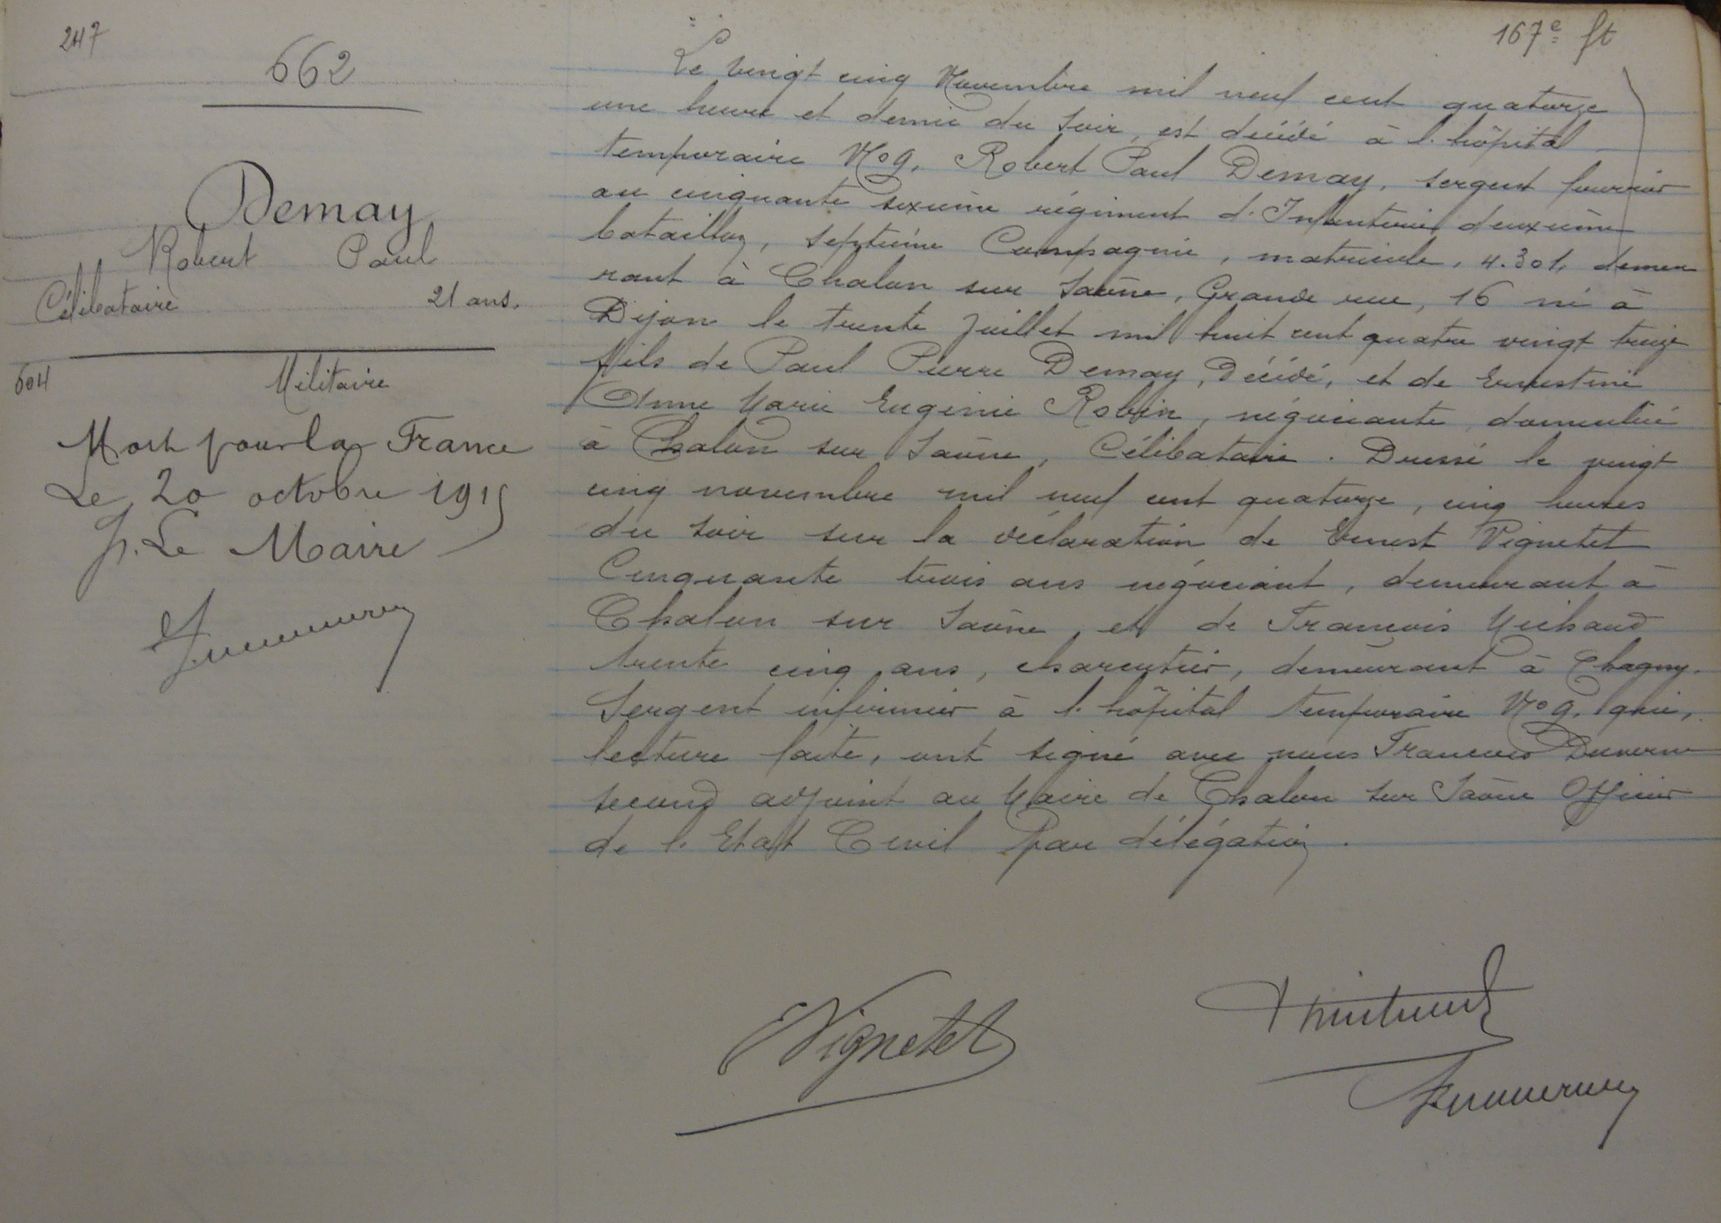 247
662
Demay
Robert Paul
Célibataire 21 ans.
604 Militaire
Mort pour la France
Le 20 octobre 1915
P. Le Maire
167e ft
Le vingt cinq Novembre mil neuf cent quatorze
une heure et demie du soir, est décédé à l'hôpital
temporaire No 9, Robert Paul Demay, sergent fourrier
au cinquante sixième régiment d'Infanterie deuxième
bataillon, septième Compagnie, matricule, 4.301, demeu
rant à Chalon sur Saône, Grande rue, 16 né à
Dijon le trente Juillet mil huit cent quatre vingt treize
fils de Paul Pierre Demay, Décédé, et de Ernestine
Anne Marie Eugénie Robin, négociante domiciliée
à Chalon sur Saône, Célibataire. Dressé le vingt
cinq novembre mil neuf cent quatorze, cinq heures
du soir sur la déclaration de Ernest Vignetet
Cinquante trois ans négociant, demeurant à
Chalon sur Saône, et de François Michaud
trente cinq ans, charcutier, demeurant à Chagny.
Sergent infirmier à l'hôpital temporaire No 9, qui,
lecture faite, ont signé avec nous François Duverne
second adjoint au Maire de Chalon sur Saône Officier
de l'Etat Civil par délégation.
EVignetet